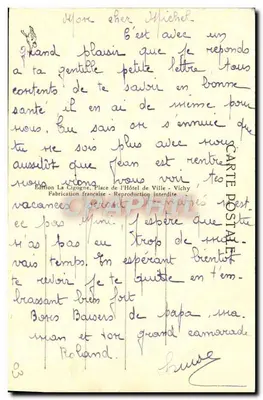 Mon cher Michel
C'est avec un
grand plaisir que je reponds
a ta gentille petite lettre tous
contents de te savoir en bonne
santé il en ai de meme pour
nous. Tu sais on s'ennuie que
tu ne sois plus avec nous
aussitot que Jean est rentré
nous irons vous voir tes
Edition La Cigogne, Place de l'Hôtel de Ville - Vichy
Fabrication française - Reproduction Interdite
vacances
ce pas Mimi J'espère que tu
n'as pas eu trop de mau
vais temps. En espérant bientot
te revoir je te quitte en t'em
brassant bien fort
Bons Baisers de papa ma
man et ton grand camarade
Roland.
CARTE POSTALE